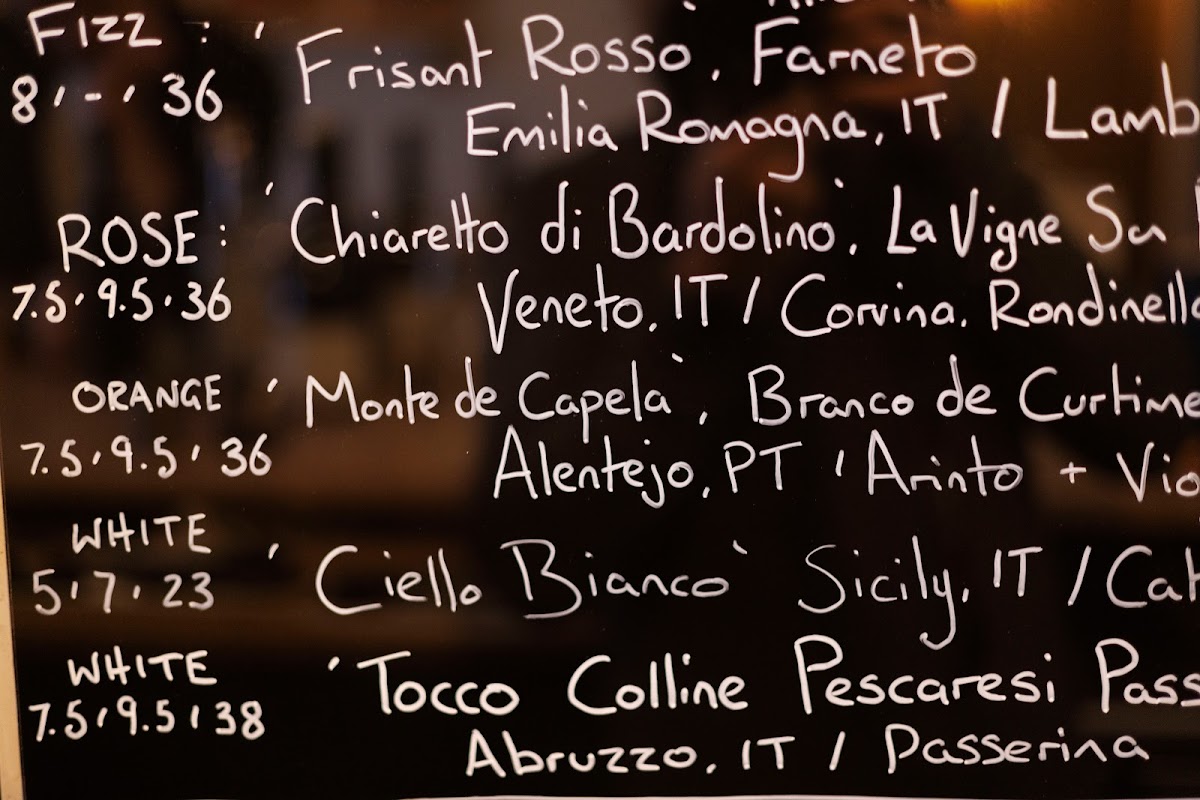 FIZZ : ' Frisant Rosso', Farneto
8 / - / 36
Emilia Romagna, IT / Lamb
ROSE : 'Chiaretto di Bardolino', La Vigne Su
7.5 / 9.5 / 36
Veneto, IT / Corvina, Rondinello
ORANGE 'Monte de Capela', Branco de Curtime
7.5 / 9.5 / 36
Alentejo, PT / Arinto + Vio
WHITE 'Ciello Bianco' Sicily, IT / Cat
5 / 7 / 23
WHITE 'Tocco Colline Pescaresi Pass
7.5 / 9.5 / 38
Abruzzo, IT / Passerina